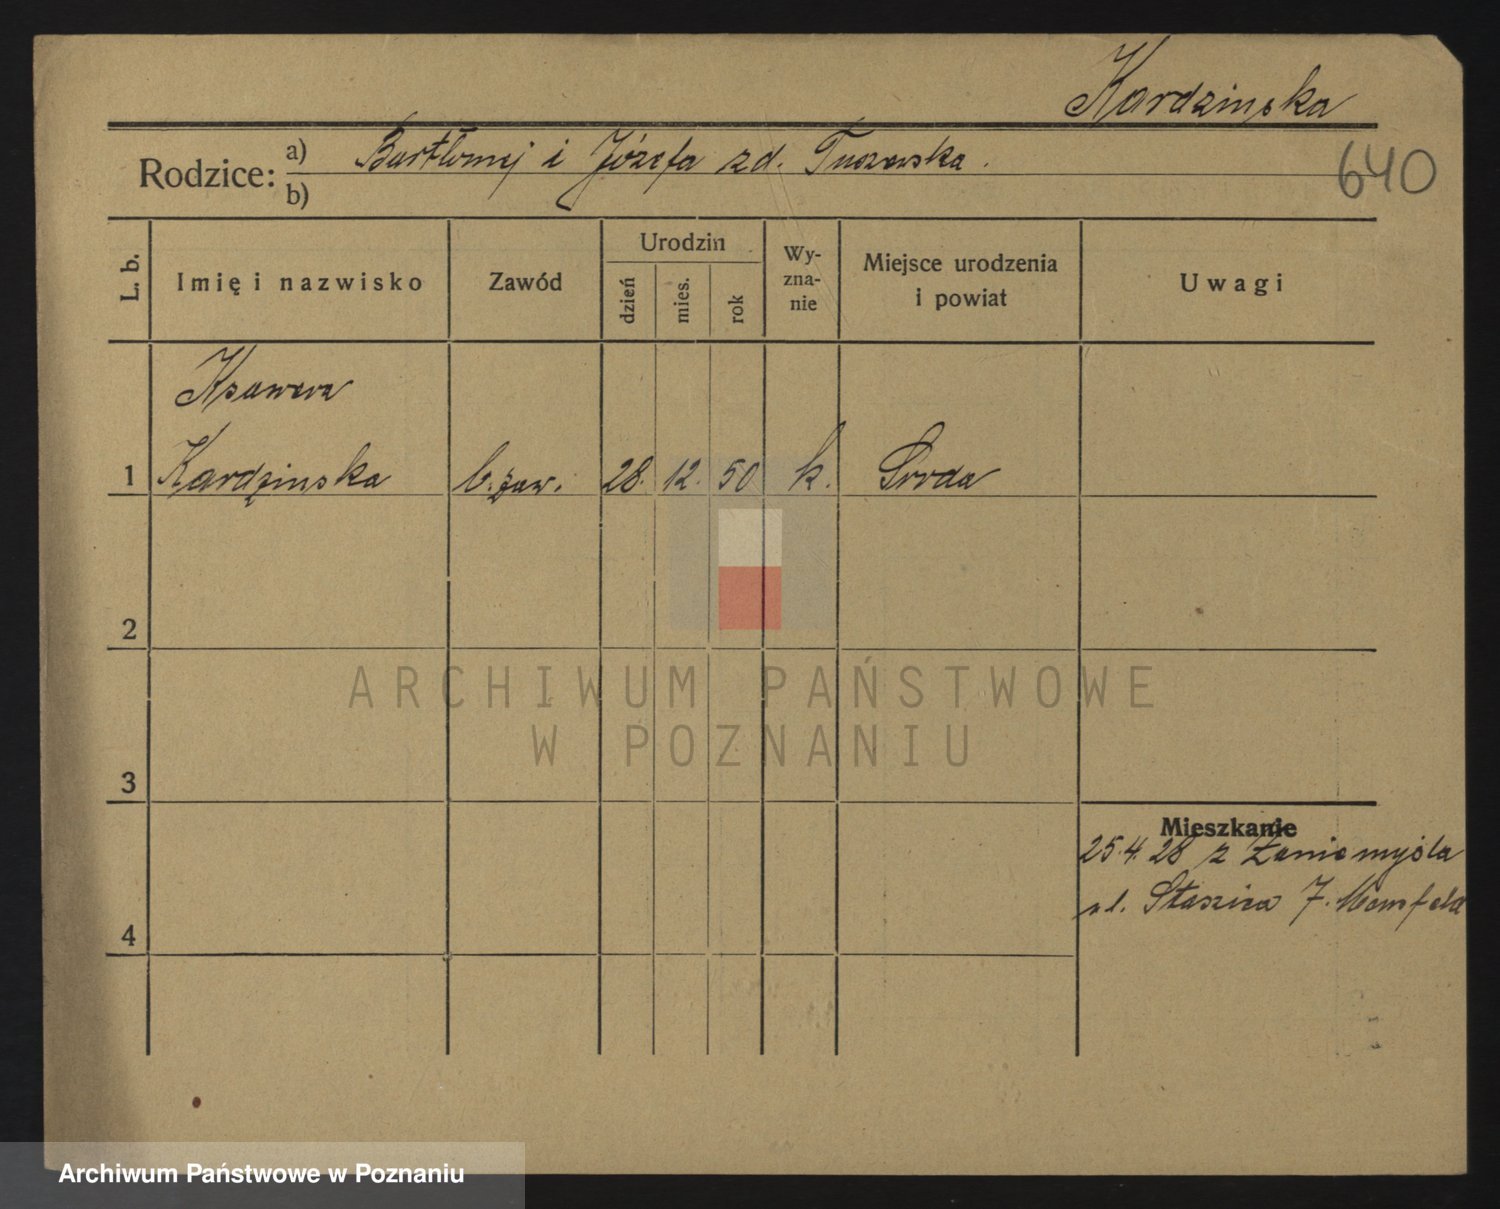 Kardzinska
Rodzice: a) Bartłomiej i Józefa zd.
b)
640
L. b.
Imię i nazwisko
Zawód
Urodzin
dzień
mies.
rok
Wy-
zna-
nie
Miejsce urodzenia
i powiat
Uwagi
Ksawera
1 Kardzinska b. zaw. 28. 12. 50 k. Środa
2
ARCHIWUM PAŃSTWOWE
W POZNANIU
3
Mieszkanie
25.4.28 z Zaniemyśla
ul. Staszica 7.
4
Archiwum Państwowe w Poznaniu